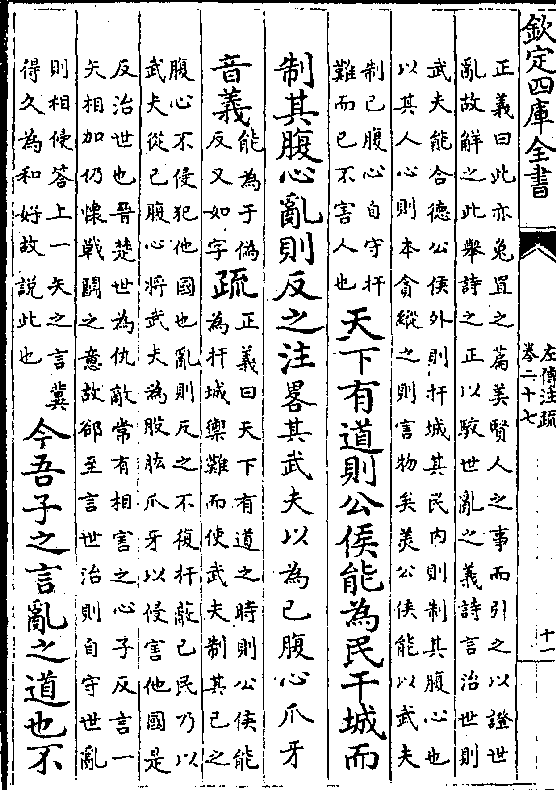 欽定四庫全書
左傳注疏
卷二十七
十一
正義曰此亦兔罝之篇美賢人之事而引之以證世
亂故解之此舉詩之正以駮世亂之義詩言治世則
武夫能合德公侯外則扞城其民内則制其腹心也
以其人心則本貪縱之則害物矣美公侯能以武夫
制已腹心自守扞
難而已不害人也
天下有道則公侯能為民干城而
制其腹心亂則反之注畧其武夫以為已腹心爪牙
音義
能為于偽
反又如字
疏
正義曰天下有道之時則公侯能
為扞城禦難而使武夫制其已之
腹心不侵犯他國也亂則反之不復扞蔽已民乃以
武夫從已腹心將武夫為股肱爪牙以侵害他國是
反治世也晉楚世為仇敵常有相害之心子反言一
矢相加仍懷戰鬬之意故郤至言世治則自守世亂
則相侵答上一矢之言冀
得久為和好故説此也
今吾子之言亂之道也不